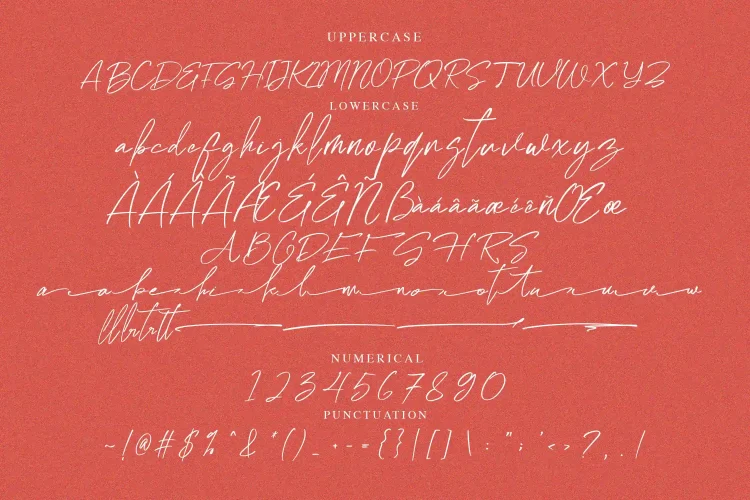 UPPERCASE
ABCDEFGHIJKLMNOPQRSTUVWXYZ
LOWERCASE
abcdefghijklmnopqrstuvwxyz
ÀÁÂÃÆÉÊÑßàáâãæéêñŒœ
ABCDEFGHRS
NUMERICAL
1234567890
PUNCTUATION
~!@#$%^&*()_+-={}|[]\:";'<>?,./